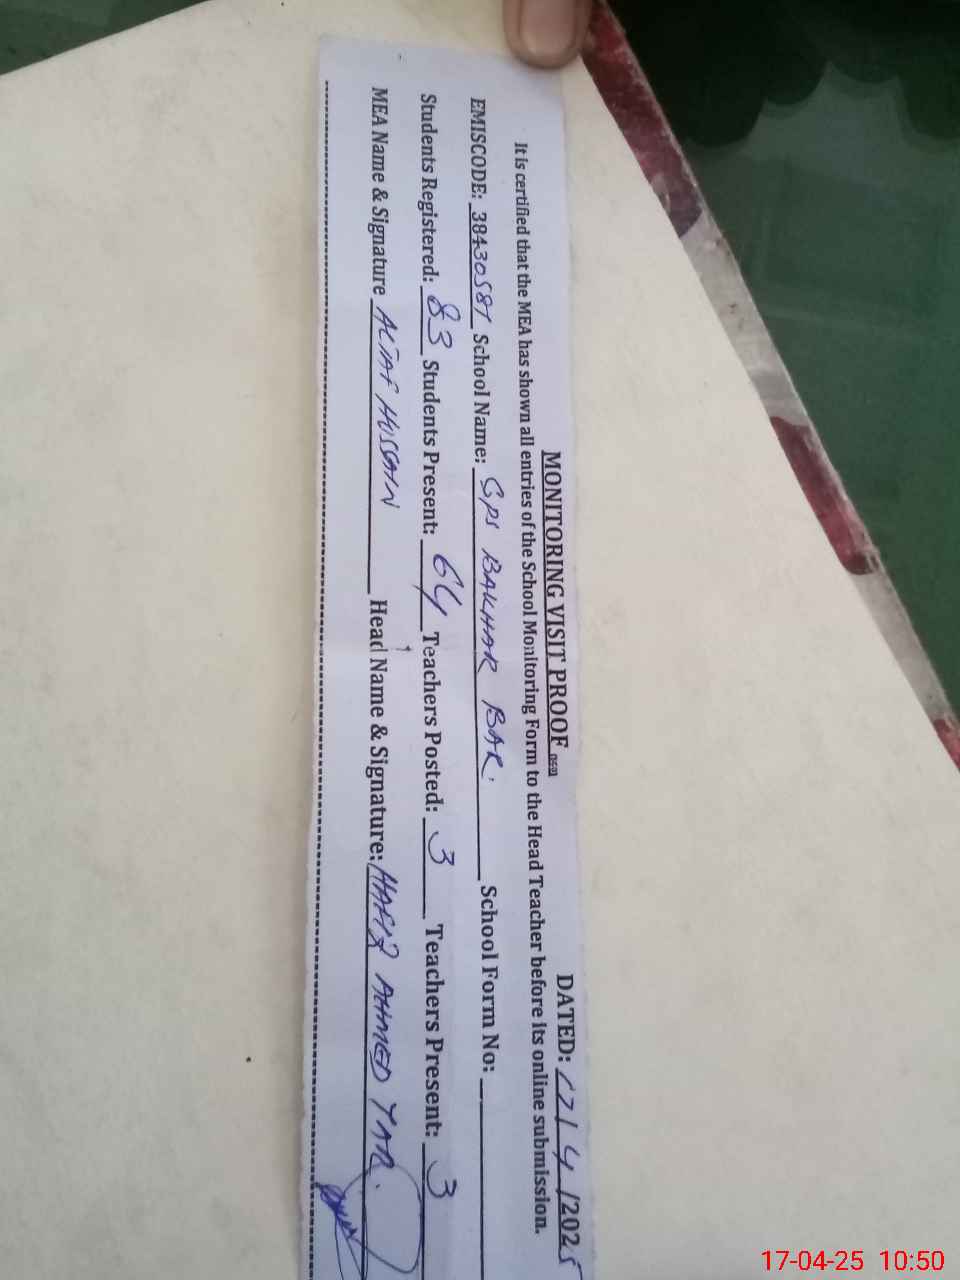 MONITORING VISIT PROOF DATED: 17/4/2025
It is certified that the MEA has shown all entries of the School Monitoring Form to the Head Teacher before its online submission.
EMISCODE: 38430587 School Name: GPS BAKHAR BAR. School Form No:
Students Registered: 83 Students Present: 64 Teachers Posted: 3 Teachers Present: 3
MEA Name & Signature ALTAF HUSSAIN Head Name & Signature: HAFIZ AHMED YAR.
17-04-25 10:50